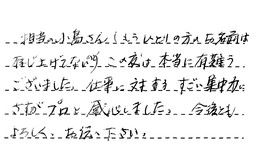 担当の小島さん、(もうひとりの方のお名前は
存じ上げてない)この度は本当に有難う
ございました。仕事に対する すごい集中力に
さすがプロと感心しました。今後とも
よろしく、お伝え下さい。